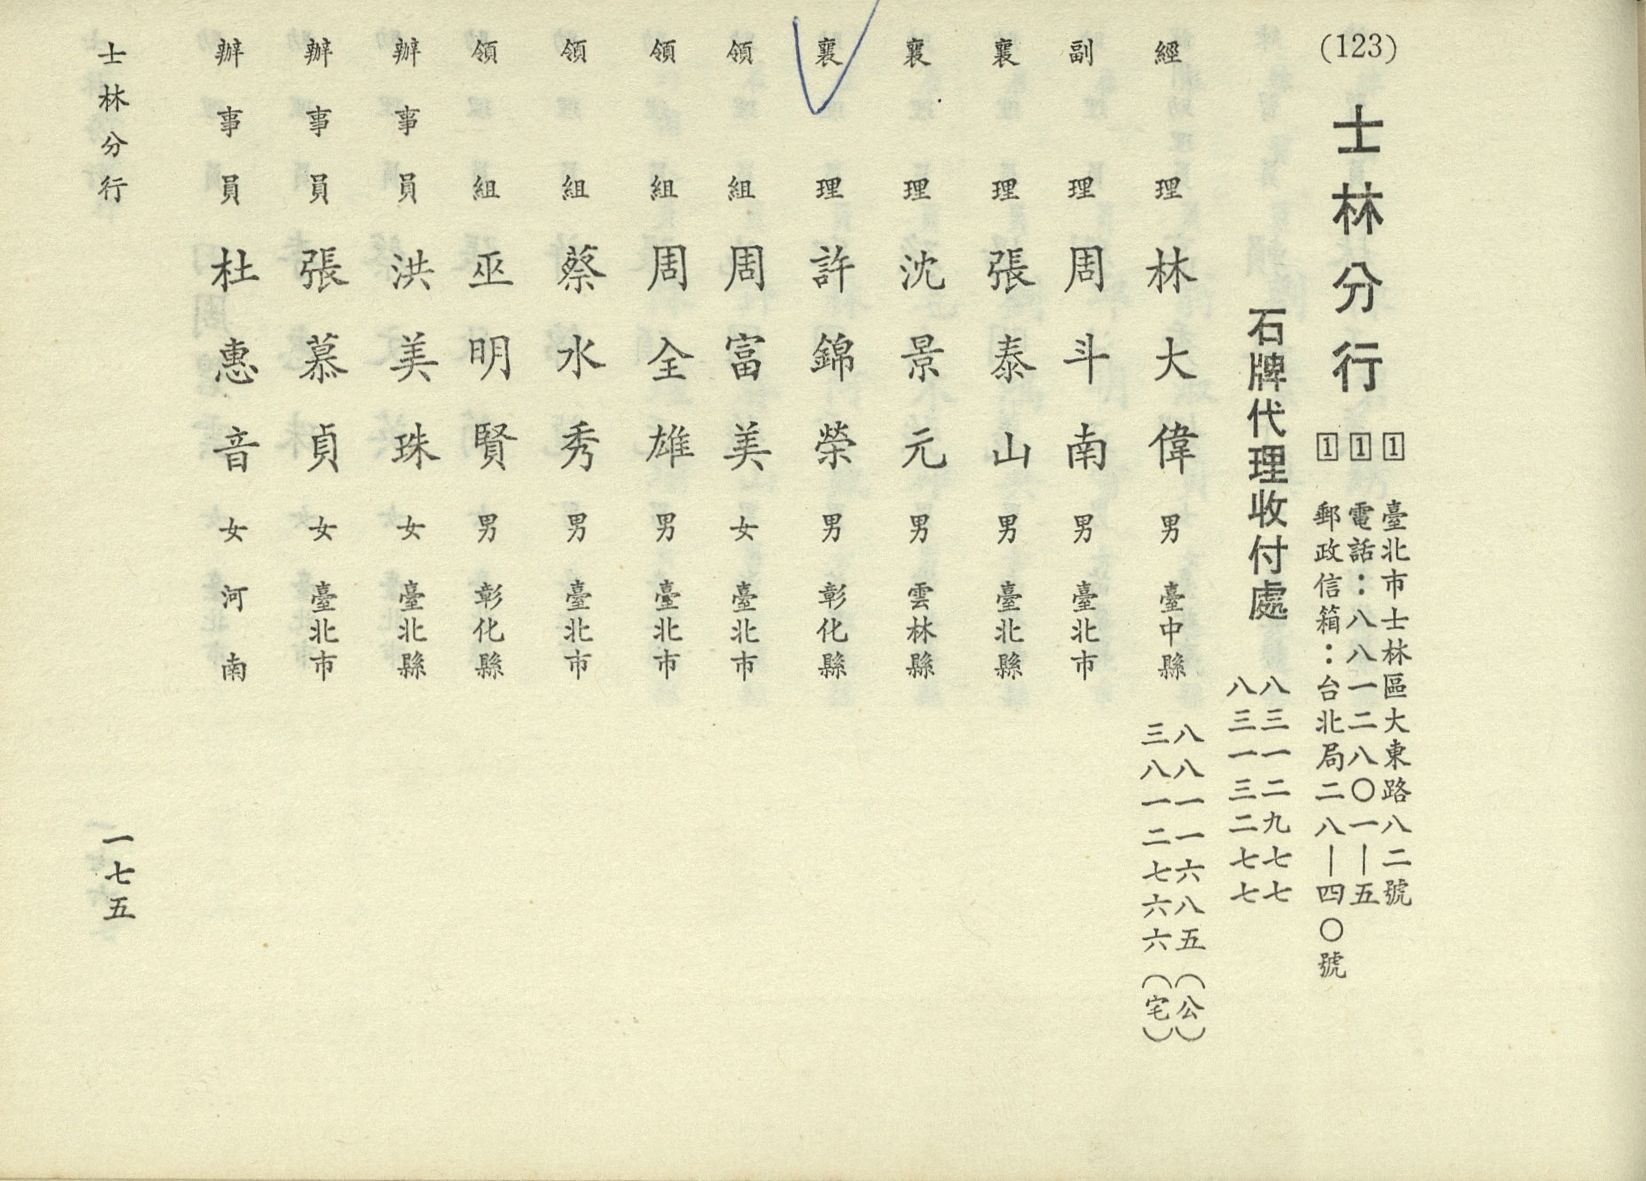 (123)
士林分行
1 臺北市士林區大東路八二號
1 電話：八八一二八〇一—五
1 郵政信箱：台北局二八—四〇號
石牌代理收付處
八三一二九七七
八三一三二七七
經理 林大偉 男 臺中縣
八八一一六八五（公）
三八一二七六六（宅）
副理 周斗南 男 臺北市
襄理 張泰山 男 臺北縣
襄理 沈景元 男 雲林縣
襄理 許錦榮 男 彰化縣
領組 周富美 女 臺北市
領組 周全雄 男 臺北市
領組 蔡水秀 男 臺北市
領組 巫明賢 男 彰化縣
辦事員 洪美珠 女 臺北縣
辦事員 張慕貞 女 臺北市
辦事員 杜惠音 女 河南
士林分行
一七五